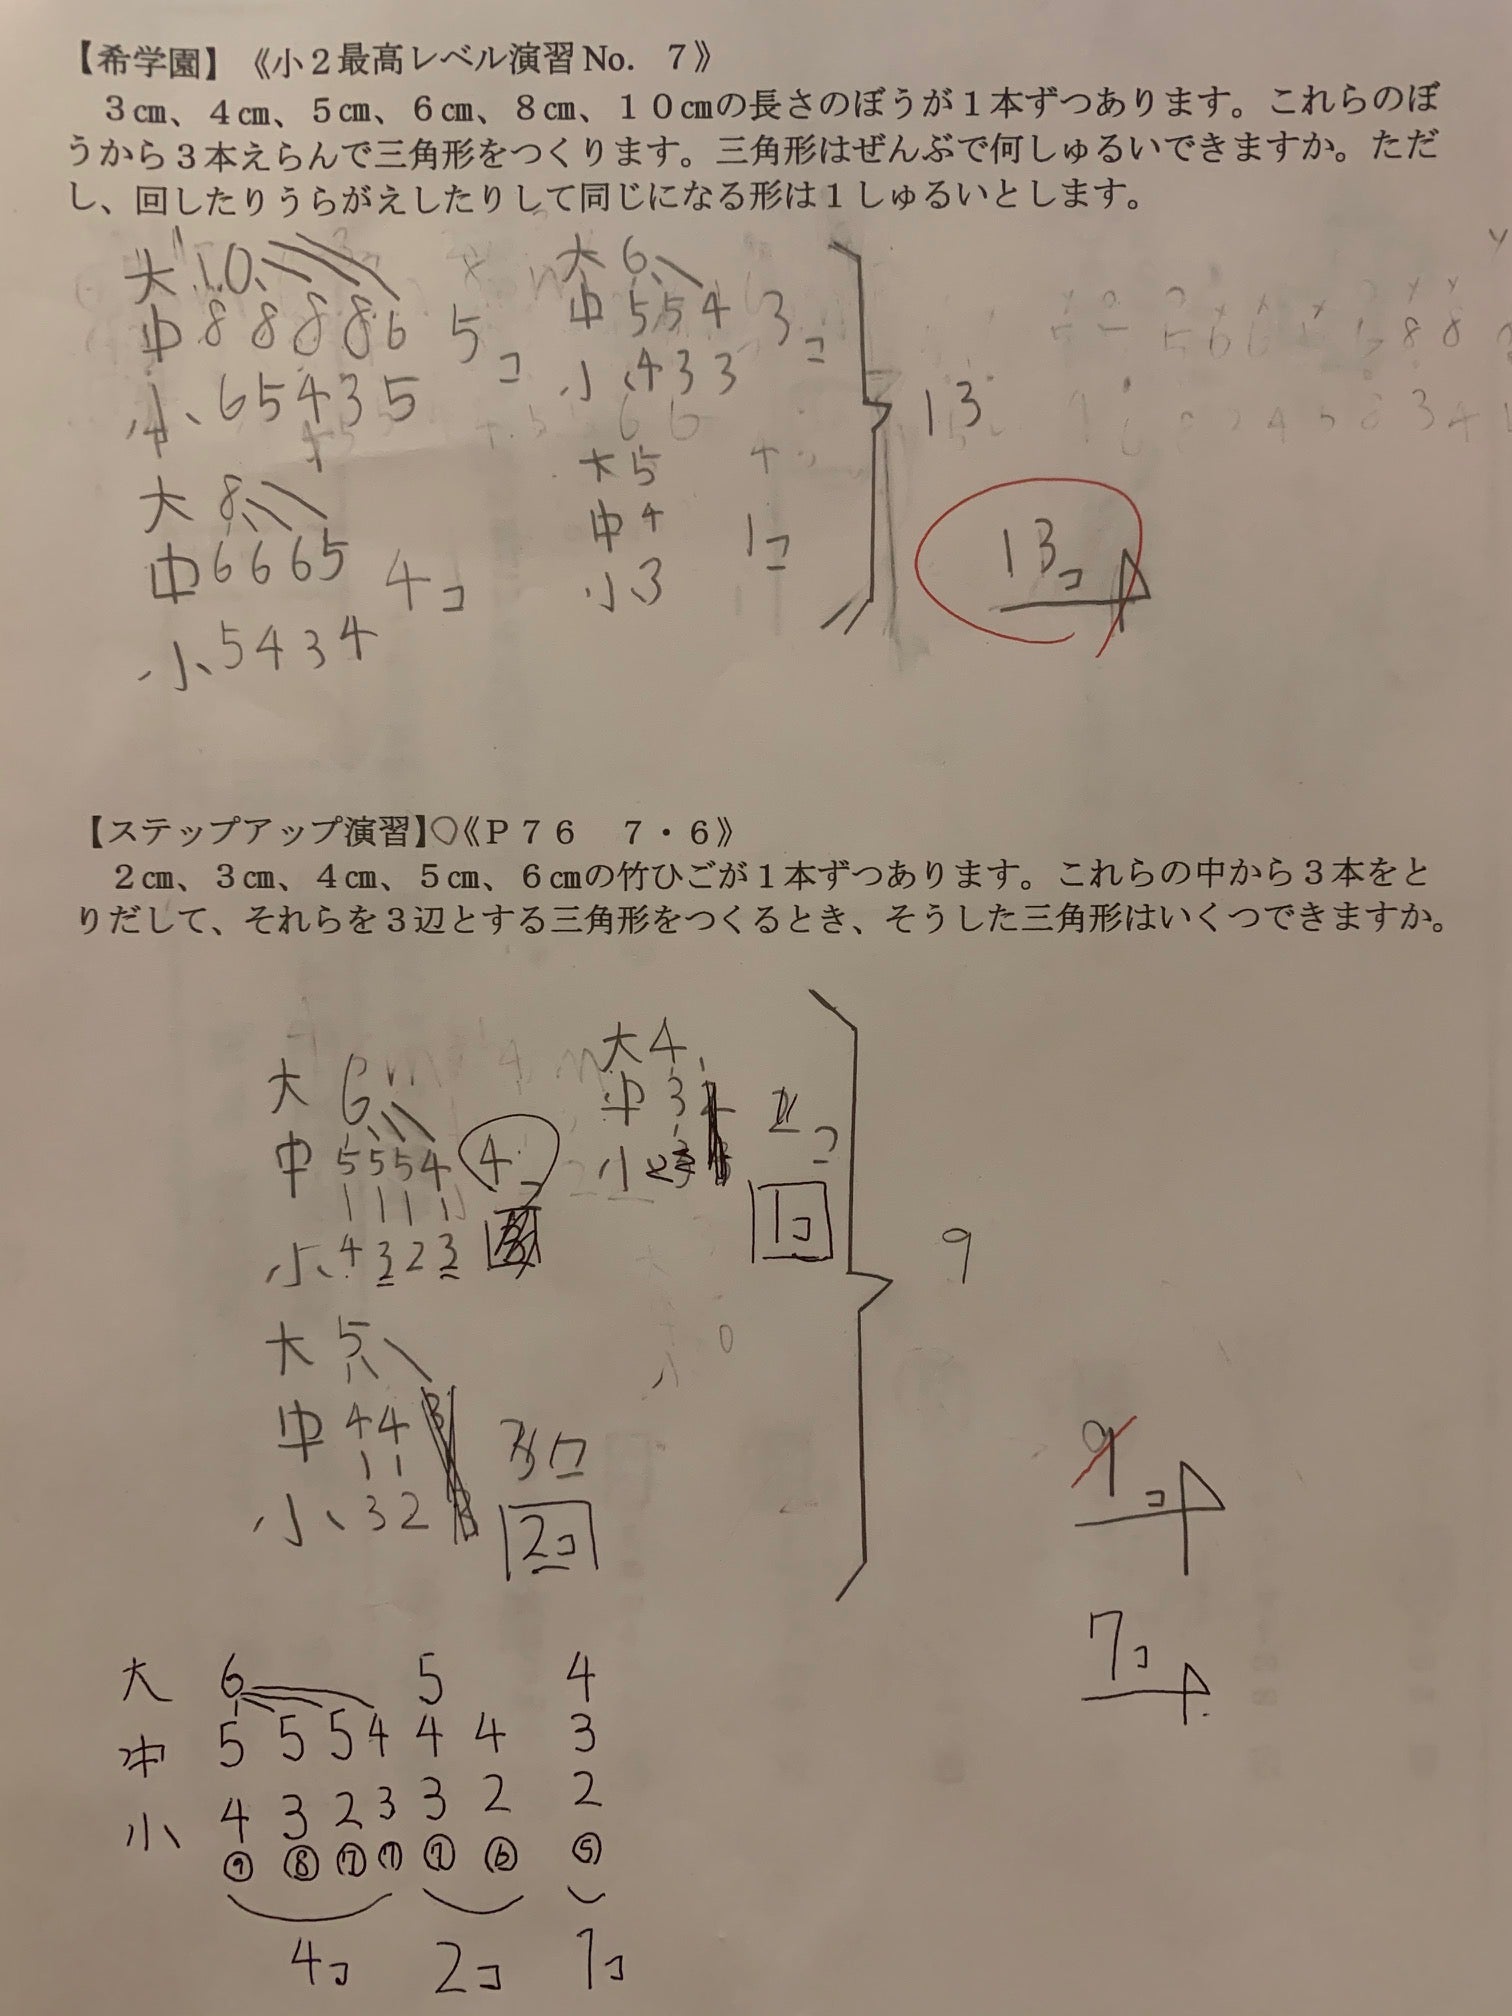 【希学園】《小２最高レベル演習No.　７》
３㎝、４㎝、５㎝、６㎝、８㎝、１０㎝の長さのぼうが１本ずつあります。これらのぼ
うから３本えらんで三角形をつくります。三角形はぜんぶで何しゅるいできますか。ただ
し、回したりうらがえしたりして同じになる形は１しゅるいとします。
大 10
中 8 8 8 8 6 5コ
小 6 5 4 3 5
大 6
中 5 5 4 3コ
小 4 3 3
大 8
中 6 6 6 5 4コ
小 5 4 3 4
大 5
中 4 1コ
小 3
13
13コ
【ステップアップ演習】○《Ｐ７６　７・６》
２㎝、３㎝、４㎝、５㎝、６㎝の竹ひごが１本ずつあります。これらの中から３本をと
りだして、それらを３辺とする三角形をつくるとき、そうした三角形はいくつできますか。
大 6
中 5 5 5 4 4コ
小 4 3 2 3
大 4
中 3
小 2
1コ
大 5
中 4 4
小 3 2
2コ
9
9コ
7コ
大 6 5 4
中 5 5 5 4 4 4 3
小 4 3 2 3 3 2 2
⑨ ⑧ ⑦ ⑦ ⑦ ⑥ ⑤
4コ 2コ 1コ